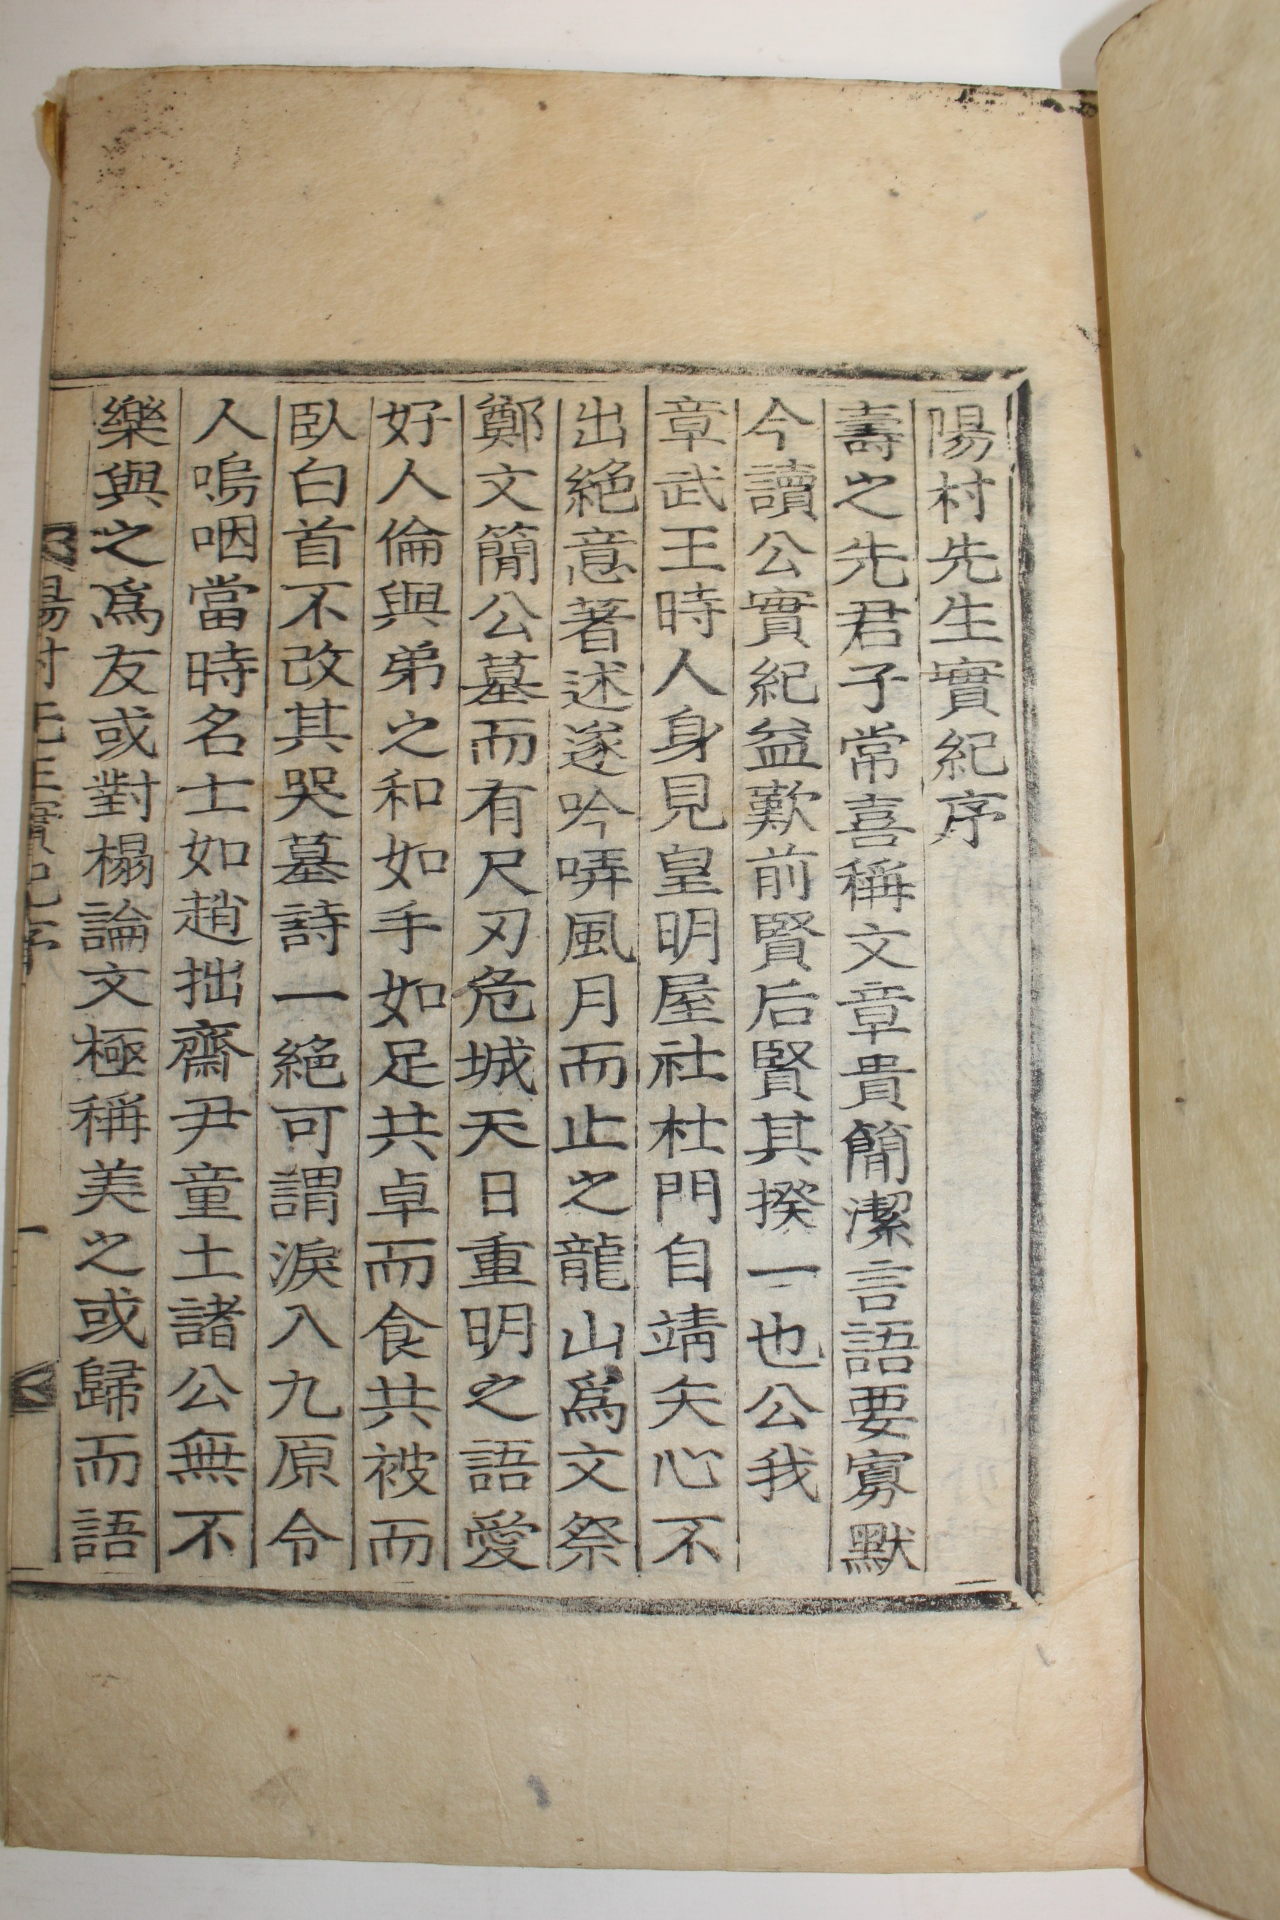 陽村先生實紀序
壽之先君子常喜稱文章貴簡潔言語要寡默
今讀公實紀益歎前賢后賢其揆一也公我
章武王時人身見皇明屋社杜門自靖矢心不
出絶意著述遂吟哢風月而止之龍山爲文祭
鄭文簡公墓而有尺刃危城天日重明之語愛
好人倫與弟之和如手如足共卓而食共被而
臥白首不改其哭墓詩一絶可謂淚入九原令
人嗚咽當時名士如趙拙齋尹童土諸公無不
樂與之爲友或對榻論文極稱美之或歸而語
陽村先生實紀序
一